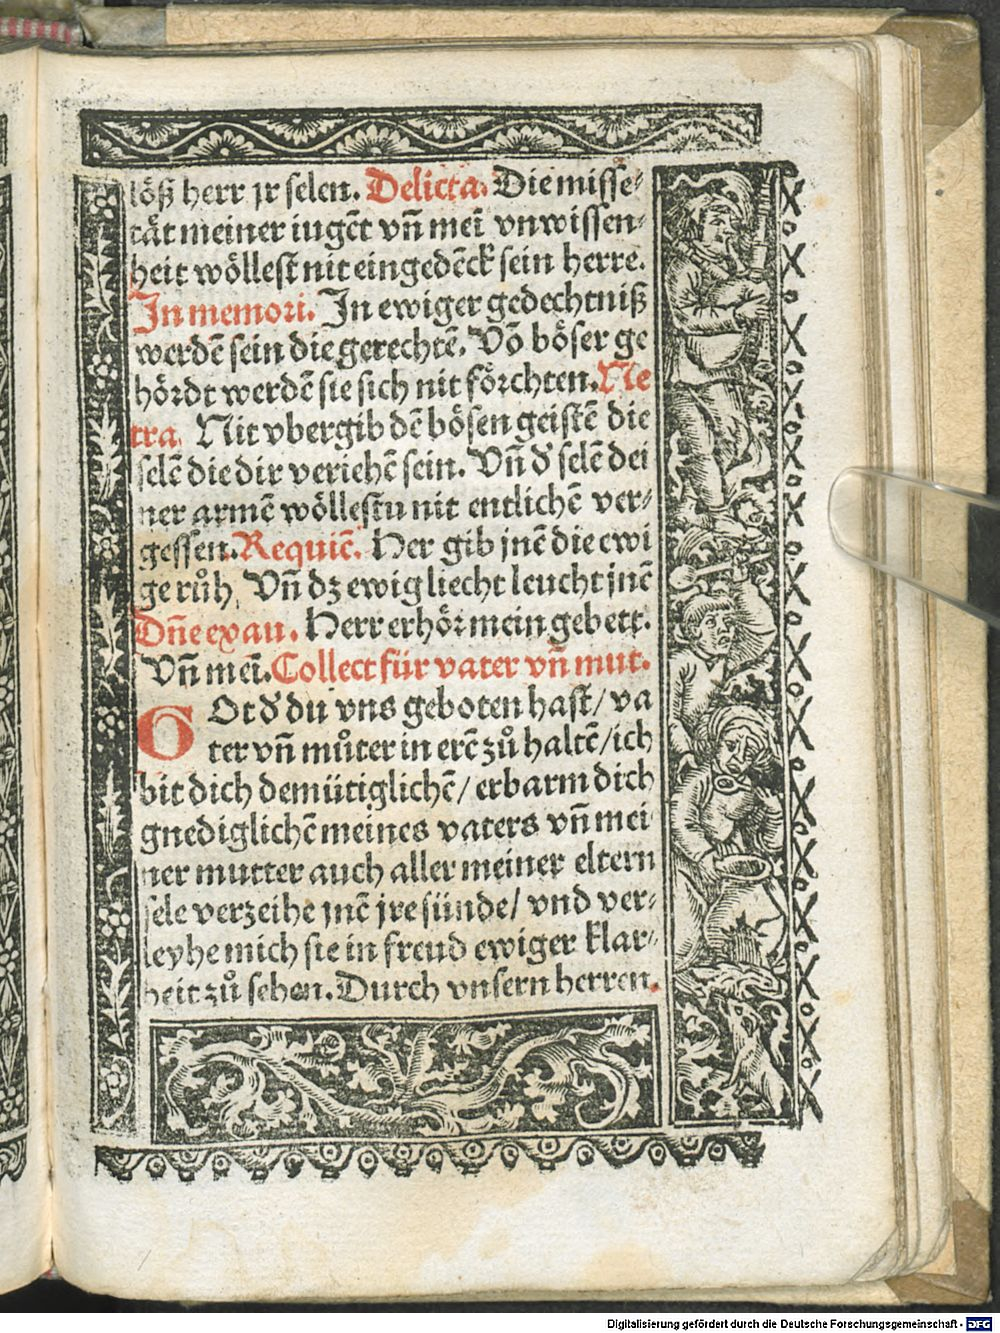 löß herr jr selen. Delicta. Die misse⸗
tät meiner iugēt vñ meī vnwissen⸗
heit wöllest nit eingedēck sein herre.
In memori. In ewiger gedechtniß
werdē sein die gerechtē. Võ böser ge
hördt werdē sie sich nit förchten. Ne
tra. Nit vbergib dē bösen geistē die
selē die dir veriehē sein. Vñ d̕ selē dei
ner armē wöllestu nit entlichē ver⸗
gessen. Requiē. Her gib jnē die ewi
ge růh. Vñ dz ewig liecht leucht jnē
Dñe exau. Herr erhör mein gebett.
Vñ meī. Collect für vater vñ mut.
GOt d̕ du vns geboten hast/ va
ter vñ můter in erē zů haltē/ ich
bit dich demütiglichē/ erbarm dich
gnediglichē meines vaters vñ mei
ner mutter auch aller meiner eltern
sele verzeihe jnē jre sünde/ vnd ver⸗
leyhe mich sie in freud ewiger klar⸗
heit zů sehen. Durch vnsern herren.
Digitalisierung gefördert durch die Deutsche Forschungsgemeinschaft - DFG